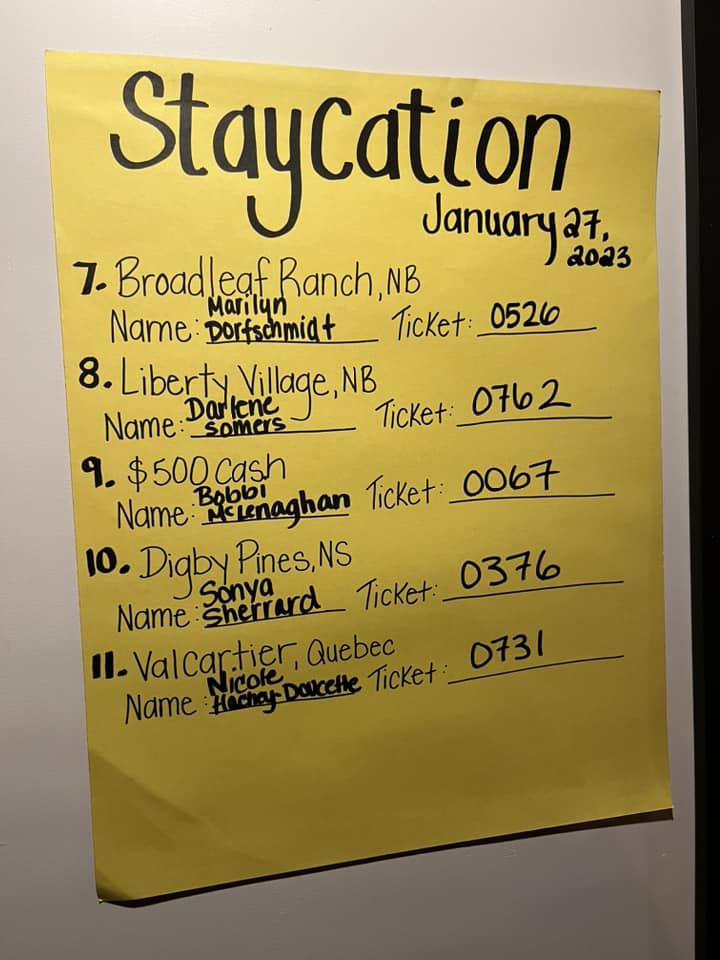 Staycation
January 27,
2023
7. Broadleaf Ranch, NB
Marilyn
Name: Dorfschmidt Ticket: 0526
8. Liberty Village, NB
Darlene
Name: Somers Ticket: 0762
9. $500 Cash
Bobbi
Name: McLenaghan Ticket: 0067
10. Digby Pines, NS
Sonya
Name: Sherrard Ticket: 0376
11. Valcartier, Quebec
Nicole
Name: Hachey-Doucette Ticket: 0731